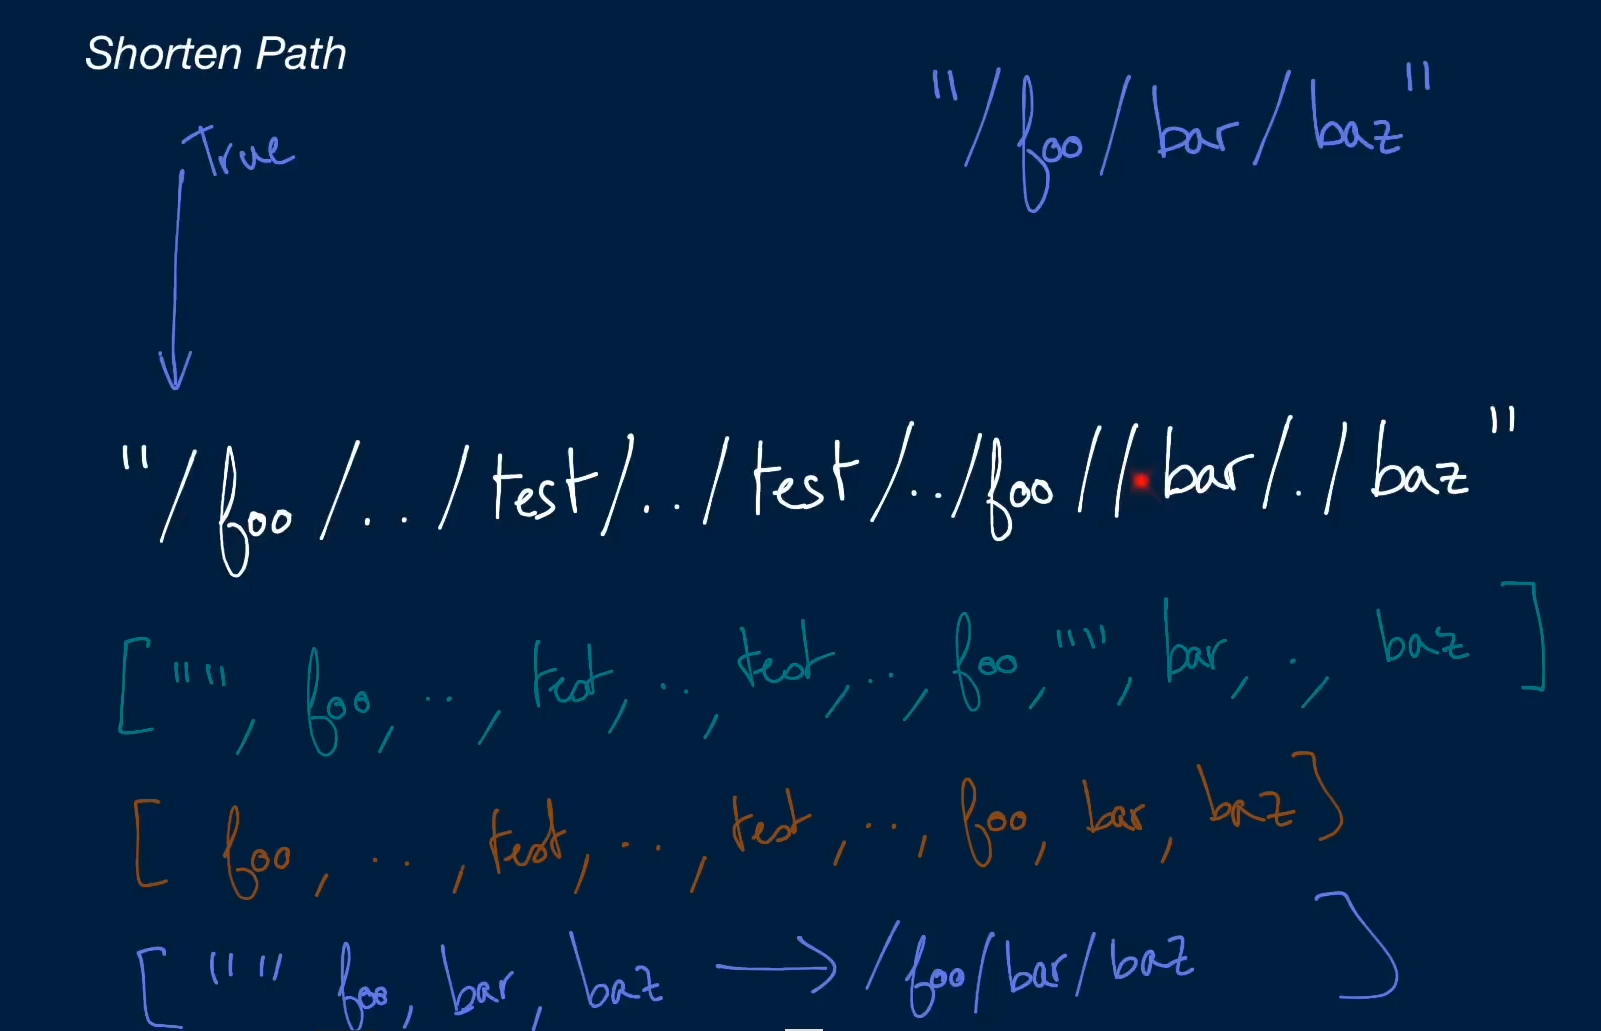 Shorten Path
"/foo/bar/baz"
True
"/foo/../test/../test/../foo//bar/./baz"
["", foo, .., test, .., test, .., foo, "", bar, ., baz]
[foo, .., test, .., test, .., foo, bar, baz]
["" foo, bar, baz → /foo/bar/baz]